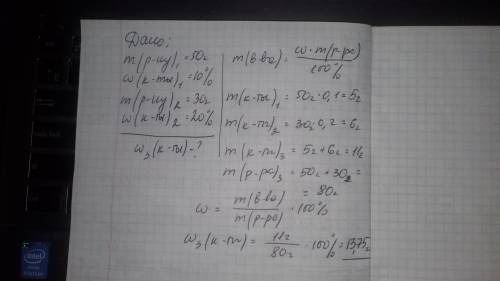 Дано:
m(р-ну)₁ = 50г
ω(к-ты)₁ = 10%
m(р-ну)₂ = 30г
ω(к-ты)₂ = 20%
ω₃(к-ты) - ?
m(в-ва) = ω · m(р-ра) / 100%
m(к-ты)₁ = 50г · 0,1 = 5г
m(к-ты)₂ = 30г · 0,2 = 6г
m(к-ты)₃ = 5г + 6г = 11г
m(р-ра)₃ = 50г + 30г =
= 80г
ω = m(в-ва) / m(р-ра) · 100%
ω₃(к-ты) = 11г / 80г · 100% = 13,75г
intel